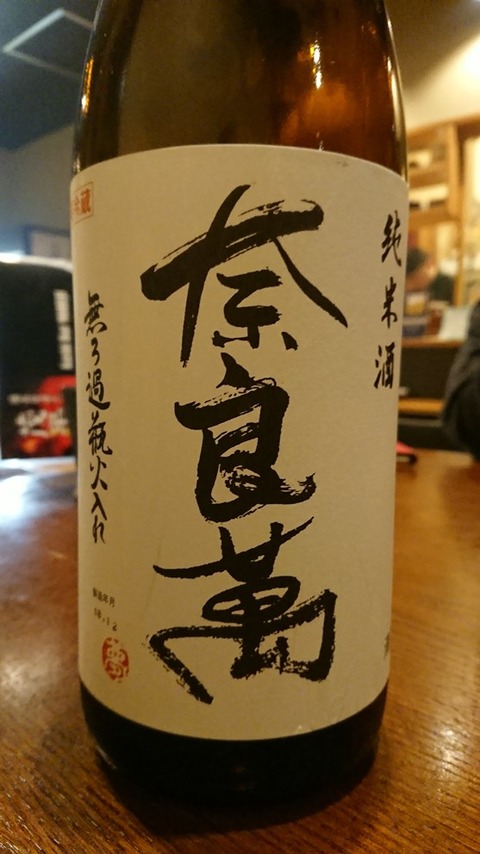 純米酒
奈良萬
無ろ過瓶火入れ
製造年月